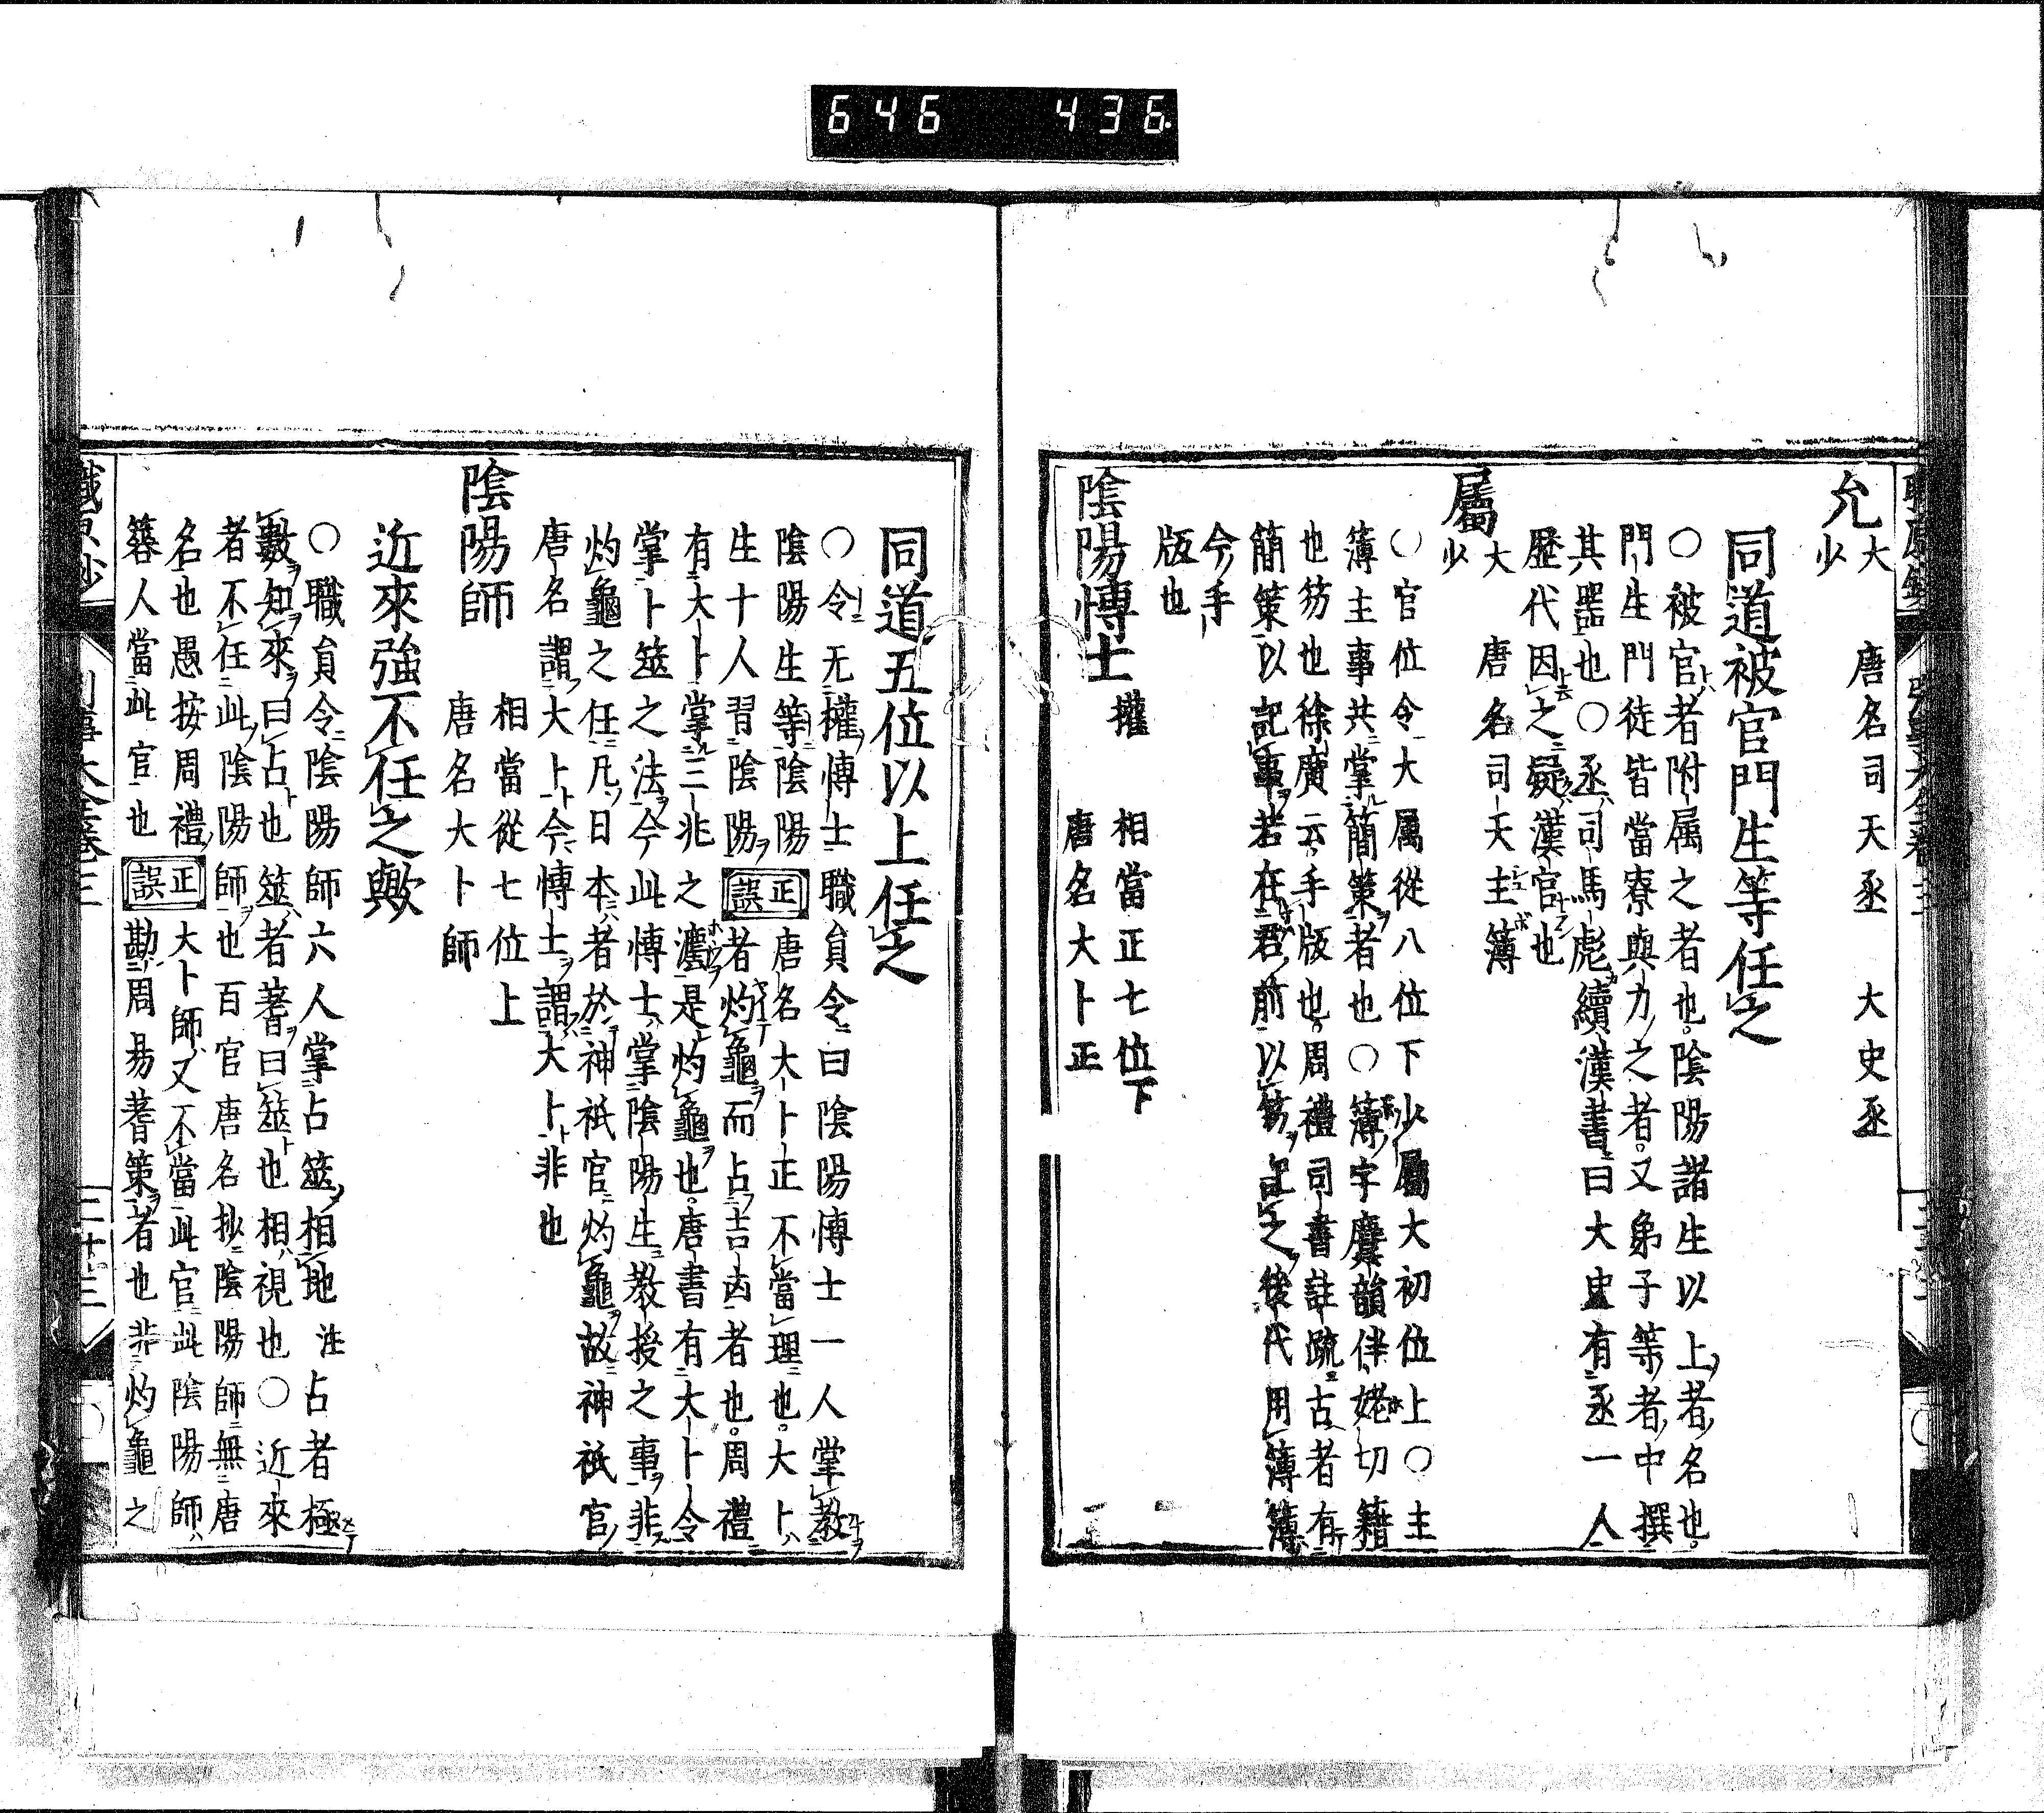 646 436
允 大少 唐名司天丞 大史丞
同道被官門生等任之
○被官者附属之者也陰陽諸生以上者名也
門生門徒皆當寮與力之者又弟子等者中撰
其器也○丞司馬彪續漢書曰大史有丞一人
歷代因之擬漢官也
屬 大少 唐名司天主簿
○官位令大属從八位下少屬大初位上○主
簿主事共掌簡策者也○簿字廣韻伴姥切籍
也笏也徐廣云手版也周禮司書註疏古者有
簡策以記事若在君前以笏記之後代用簿簿
今手
版也
陰陽博士 權 相當正七位下 唐名大卜正
同道五位以上任之
○令无權博士職員令曰陰陽博士一人掌教
陰陽生等陰陽 唐名大卜正不當理也大卜
生十人習陰陽 正誤 者灼龜而占吉凶者也周禮
有大卜掌三兆之灋是灼龜也唐書有大卜令
掌卜筮之法今此博士掌陰陽生教授之事非
灼龜之任凡日本者於神祇官灼龜故神祇官
唐名謂大卜令博士謂大卜非也
陰陽師 相當從七位上 唐名大卜師
近來強不任之歟
○職員令陰陽師六人掌占筮相地 註占者極
數知來曰占也筮者蓍曰筮也相視也○近來
者不任此陰陽師也百官唐名抄陰陽師無唐
名也愚按周禮 正誤 大卜師又不當此官此陰陽師
簭人當此官也 勘周易蓍策者也非灼龜之
三十三